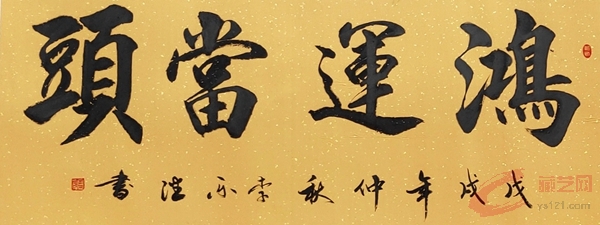 鴻運當頭
戊戌年仲秋李不法書
藏艺网
ys121.com